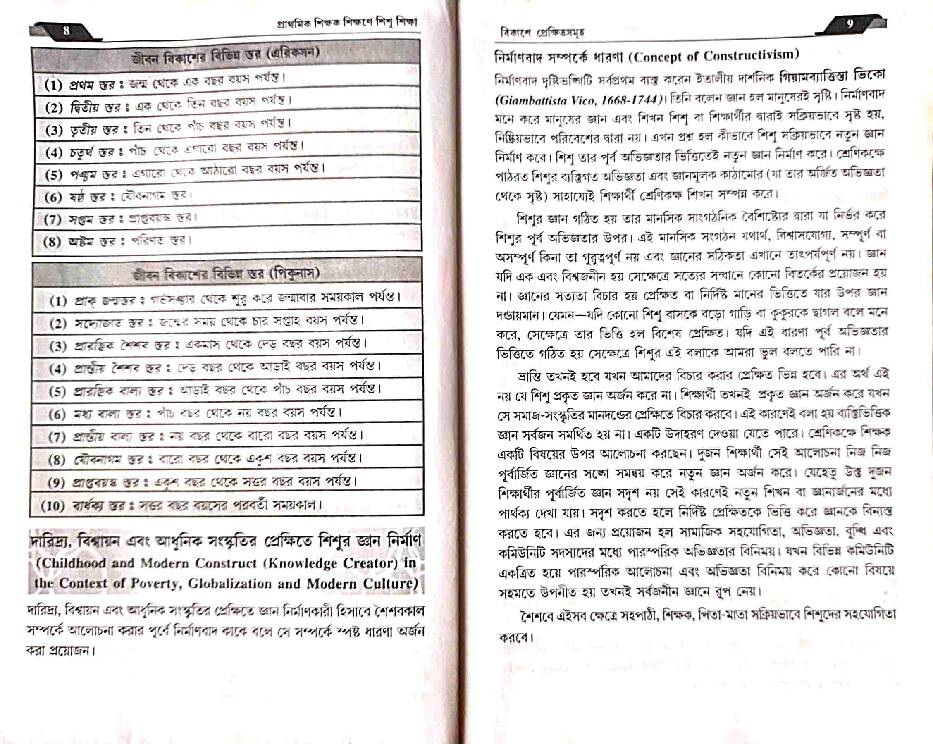 8
প্রাথমিক শিক্ষক শিক্ষণে শিশু শিক্ষা
জীবন বিকাশের বিভিন্ন স্তর (এরিকসন)
(1) প্রথম স্তর : জন্ম থেকে এক বছর বয়স পর্যন্ত।
(2) দ্বিতীয় স্তর : এক থেকে তিন বছর বয়স পর্যন্ত।
(3) তৃতীয় স্তর : তিন থেকে পাঁচ বছর বয়স পর্যন্ত।
(4) চতুর্থ স্তর : পাঁচ থেকে এগারো বছর বয়স পর্যন্ত।
(5) পঞ্চম স্তর : এগারো থেকে আঠারো বছর বয়স পর্যন্ত।
(6) ষষ্ঠ স্তর : যৌবনাগম স্তর।
(7) সপ্তম স্তর : প্রাপ্তবয়স্ক স্তর।
(8) অষ্টম স্তর : পরিণত স্তর।
জীবন বিকাশের বিভিন্ন স্তর (পিকুনাস)
(1) প্রাক্ জন্মস্তর : গর্ভসঞ্চার থেকে শুরু করে জন্মাবার সময়কাল পর্যন্ত।
(2) সদ্যোজাত স্তর : জন্মের সময় থেকে চার সপ্তাহ বয়স পর্যন্ত।
(3) প্রারম্ভিক শৈশব স্তর : একমাস থেকে দেড় বছর বয়স পর্যন্ত।
(4) প্রান্তীয় শৈশব স্তর : দেড় বছর থেকে আড়াই বছর বয়স পর্যন্ত।
(5) প্রারম্ভিক বাল্য স্তর : আড়াই বছর থেকে পাঁচ বছর বয়স পর্যন্ত।
(6) মধ্য বাল্য স্তর : পাঁচ বছর থেকে নয় বছর বয়স পর্যন্ত।
(7) প্রান্তীয় বাল্য স্তর : নয় বছর থেকে বারো বছর বয়স পর্যন্ত।
(8) যৌবনাগম স্তর : বারো বছর থেকে একুশ বছর বয়স পর্যন্ত।
(9) প্রাপ্তবয়স্ক স্তর : একুশ বছর থেকে সত্তর বছর বয়স পর্যন্ত।
(10) বার্ধক্য স্তর : সত্তর বছর বয়সের পরবর্তী সময়কাল।
দারিদ্র্য, বিশ্বায়ন এবং আধুনিক সংস্কৃতির প্রেক্ষিতে শিশুর জ্ঞান নির্মাণ
(Childhood and Modern Construct (Knowledge Creator) in
the Context of Poverty, Globalization and Modern Culture)
দারিদ্র্য, বিশ্বায়ন এবং আধুনিক সংস্কৃতির প্রেক্ষিতে জ্ঞান নির্মাণকারী হিসাবে শৈশবকাল
সম্পর্কে আলোচনা করার পূর্বে নির্মাণবাদ কাকে বলে সে সম্পর্কে স্পষ্ট ধারণা অর্জন
করা প্রয়োজন।
বিকাশে প্রেক্ষিতসমূহ
9
নির্মাণবাদ সম্পর্কে ধারণা (Concept of Constructivism)
নির্মাণবাদ দৃষ্টিভঙ্গিটি সর্বপ্রথম ব্যক্ত করেন ইতালীয় দার্শনিক গিয়ামব্যাত্তিস্তা ভিকো
(Giambattista Vico, 1668-1744)। তিনি বলেন জ্ঞান হল মানুষেরই সৃষ্টি। নির্মাণবাদ
মনে করে মানুষের জ্ঞান এবং শিখন শিশু বা শিক্ষার্থীর দ্বারাই সক্রিয়ভাবে সৃষ্ট হয়,
নিষ্ক্রিয়ভাবে পরিবেশের দ্বারা নয়। এখন প্রশ্ন হল কীভাবে শিশু সক্রিয়ভাবে নতুন জ্ঞান
নির্মাণ করে। শিশু তার পূর্ব অভিজ্ঞতার ভিত্তিতেই নতুন জ্ঞান নির্মাণ করে। শ্রেণিকক্ষে
পাঠরত শিশুর ব্যক্তিগত অভিজ্ঞতা এবং জ্ঞানমূলক কাঠামোর (যা তার অর্জিত অভিজ্ঞতা
থেকে সৃষ্ট) সাহায্যেই শিক্ষার্থী শ্রেণিকক্ষ শিখন সম্পন্ন করে।
শিশুর জ্ঞান গঠিত হয় তার মানসিক সাংগঠনিক বৈশিষ্ট্যের দ্বারা যা নির্ভর করে
শিশুর পূর্ব অভিজ্ঞতার উপর। এই মানসিক সংগঠন যথার্থ, বিশ্বাসযোগ্য, সম্পূর্ণ বা
অসম্পূর্ণ কিনা তা গুরুত্বপূর্ণ নয় এবং জ্ঞানের সঠিকতা এখানে তাৎপর্যপূর্ণ নয়। জ্ঞান
যদি এক এবং বিশ্বজনীন হয় সেক্ষেত্রে সত্যের সন্ধানে কোনো বিতর্কের প্রয়োজন হয়
না। জ্ঞানের সত্যতা বিচার হয় প্রেক্ষিত বা নির্দিষ্ট মানের ভিত্তিতে যার উপর জ্ঞান
দণ্ডায়মান। যেমন—যদি কোনো শিশু বাসকে বড়ো গাড়ি বা কুকুরকে ছাগল বলে মনে
করে, সেক্ষেত্রে তার ভিত্তি হল বিশেষ প্রেক্ষিত। যদি এই ধারণা পূর্ব অভিজ্ঞতার
ভিত্তিতে গঠিত হয় সেক্ষেত্রে শিশুর এই বলাকে আমরা ভুল বলতে পারি না।
ভ্রান্তি তখনই হবে যখন আমাদের বিচার করার প্রেক্ষিত ভিন্ন হবে। এর অর্থ এই
নয় যে শিশু প্রকৃত জ্ঞান অর্জন করে না। শিক্ষার্থী তখনই প্রকৃত জ্ঞান অর্জন করে যখন
সে সমাজ-সংস্কৃতির মানদণ্ডের প্রেক্ষিতে বিচার করবে। এই কারণেই বলা হয় ব্যক্তিভিত্তিক
জ্ঞান সর্বজন সমর্থিত হয় না। একটি উদাহরণ দেওয়া যেতে পারে। শ্রেণিকক্ষে শিক্ষক
একটি বিষয়ের উপর আলোচনা করছেন। দুজন শিক্ষার্থী সেই আলোচনা নিজ নিজ
পূর্বার্জিত জ্ঞানের সঙ্গে সমন্বয় করে নতুন জ্ঞান অর্জন করে। যেহেতু উক্ত দুজন
শিক্ষার্থীর পূর্বার্জিত জ্ঞান সদৃশ নয় সেই কারণেই নতুন শিখন বা জ্ঞানার্জনের মধ্যে
পার্থক্য দেখা যায়। সদৃশ করতে হলে নির্দিষ্ট প্রেক্ষিতকে ভিত্তি করে জ্ঞানকে বিন্যস্ত
করতে হবে। এর জন্য প্রয়োজন হল সামাজিক সহযোগিতা, অভিজ্ঞতা, বুদ্ধি এবং
কমিউনিটি সদস্যদের মধ্যে পারস্পরিক অভিজ্ঞতার বিনিময়। যখন বিভিন্ন কমিউনিটি
একত্রিত হয়ে পারস্পরিক আলোচনা এবং অভিজ্ঞতা বিনিময় করে কোনো বিষয়ে
সহমতে উপনীত হয় তখনই সর্বজনীন জ্ঞানে রূপ নেয়।
শৈশবে এইসব ক্ষেত্রে সহপাঠী, শিক্ষক, পিতা-মাতা সক্রিয়ভাবে শিশুদের সহযোগিতা
করবে।